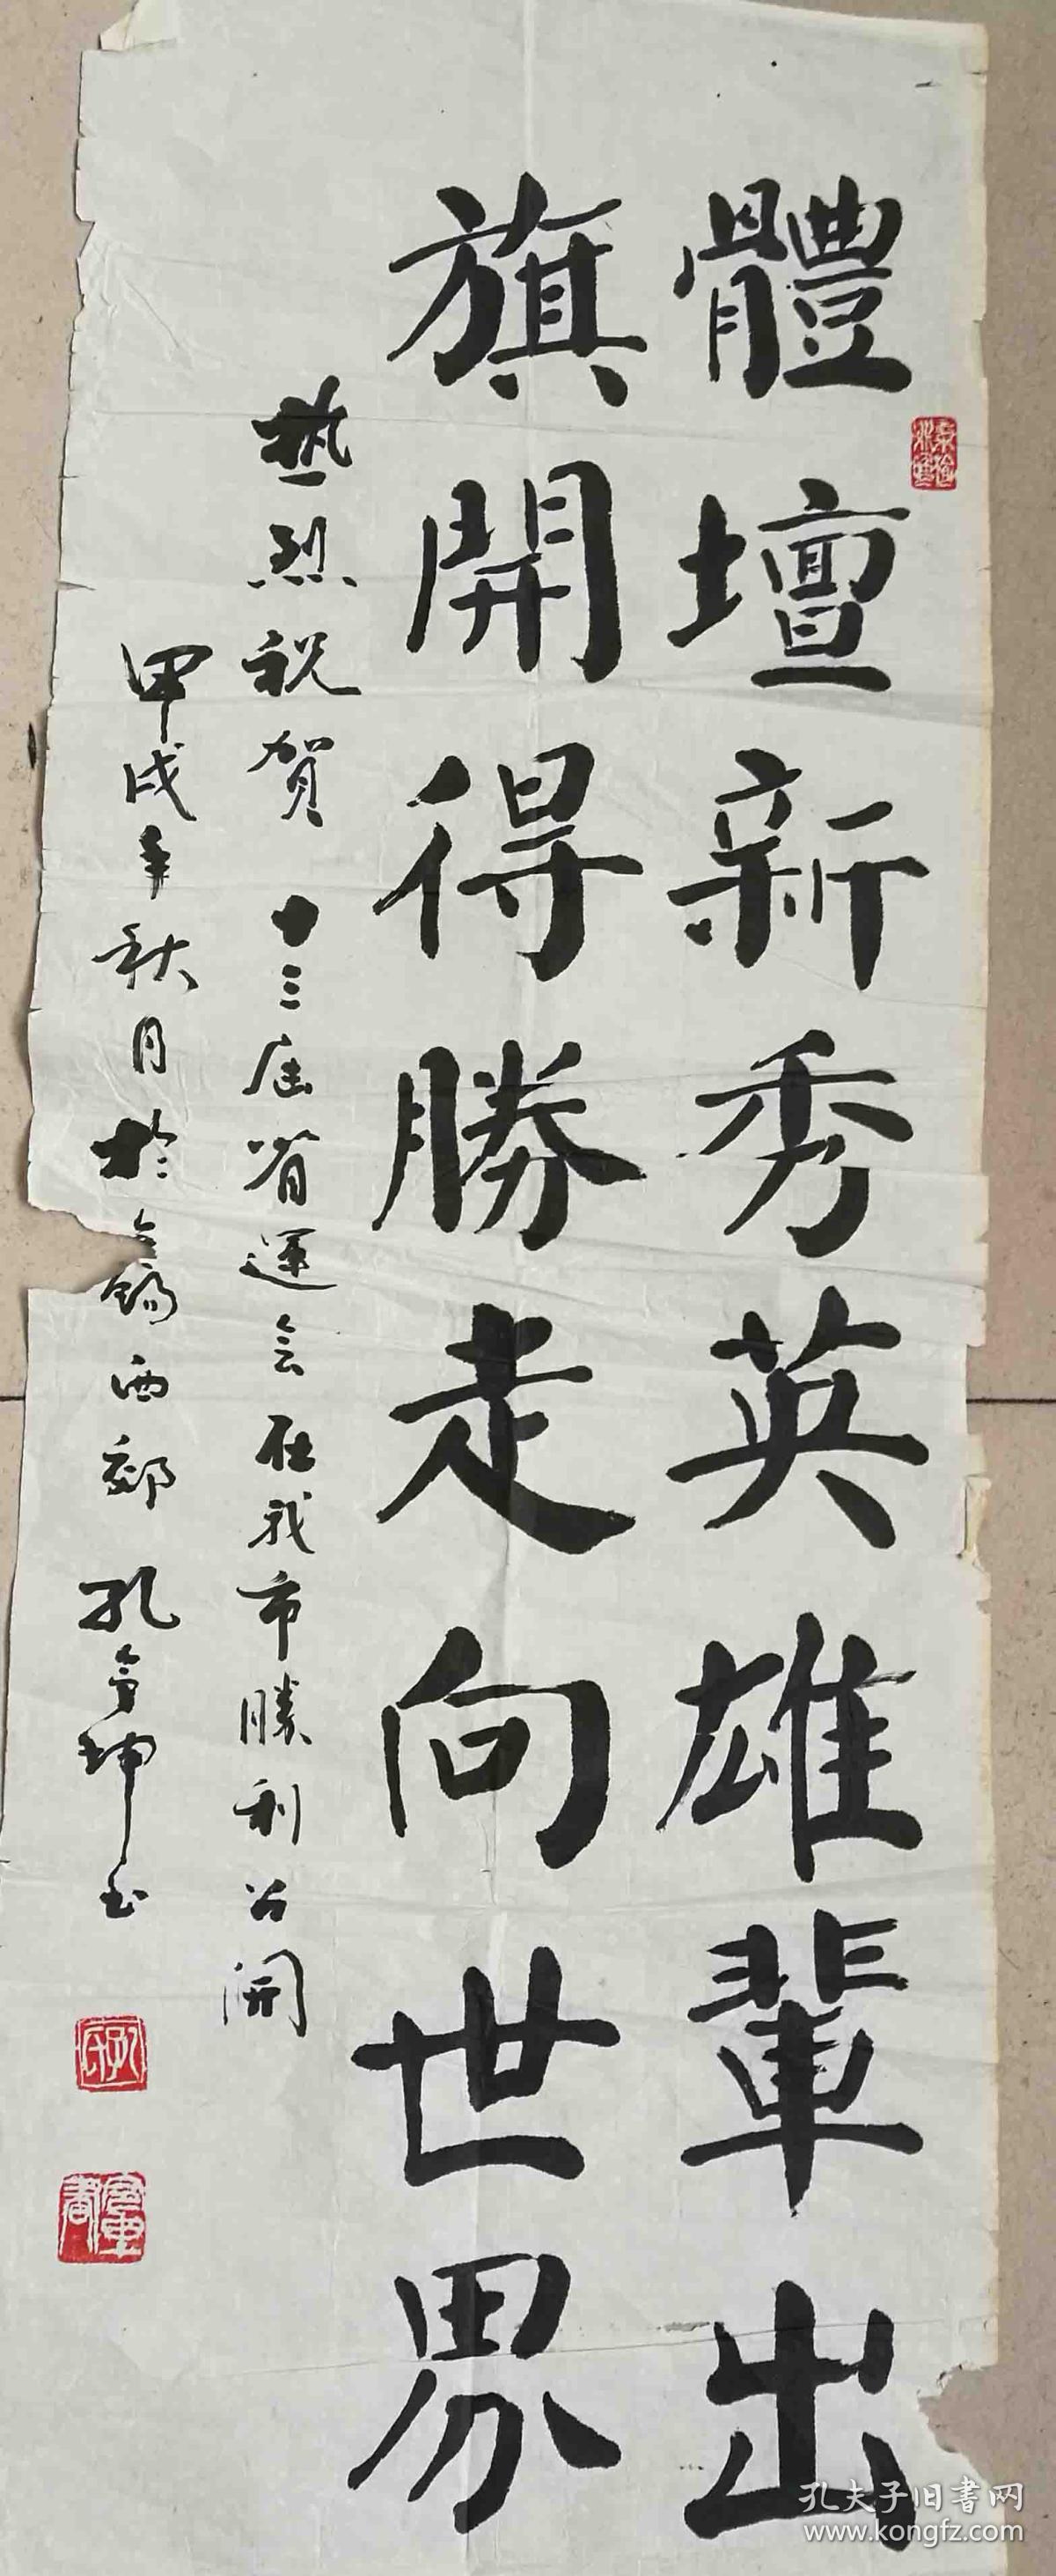 體壇新秀英雄輩出
旗開得勝走向世界
热烈祝贺十三届省運会在我市勝利召開
甲戌年秋月於錫西郊孔坤书
孔氏
孔夫子旧書网
www.kongfz.com